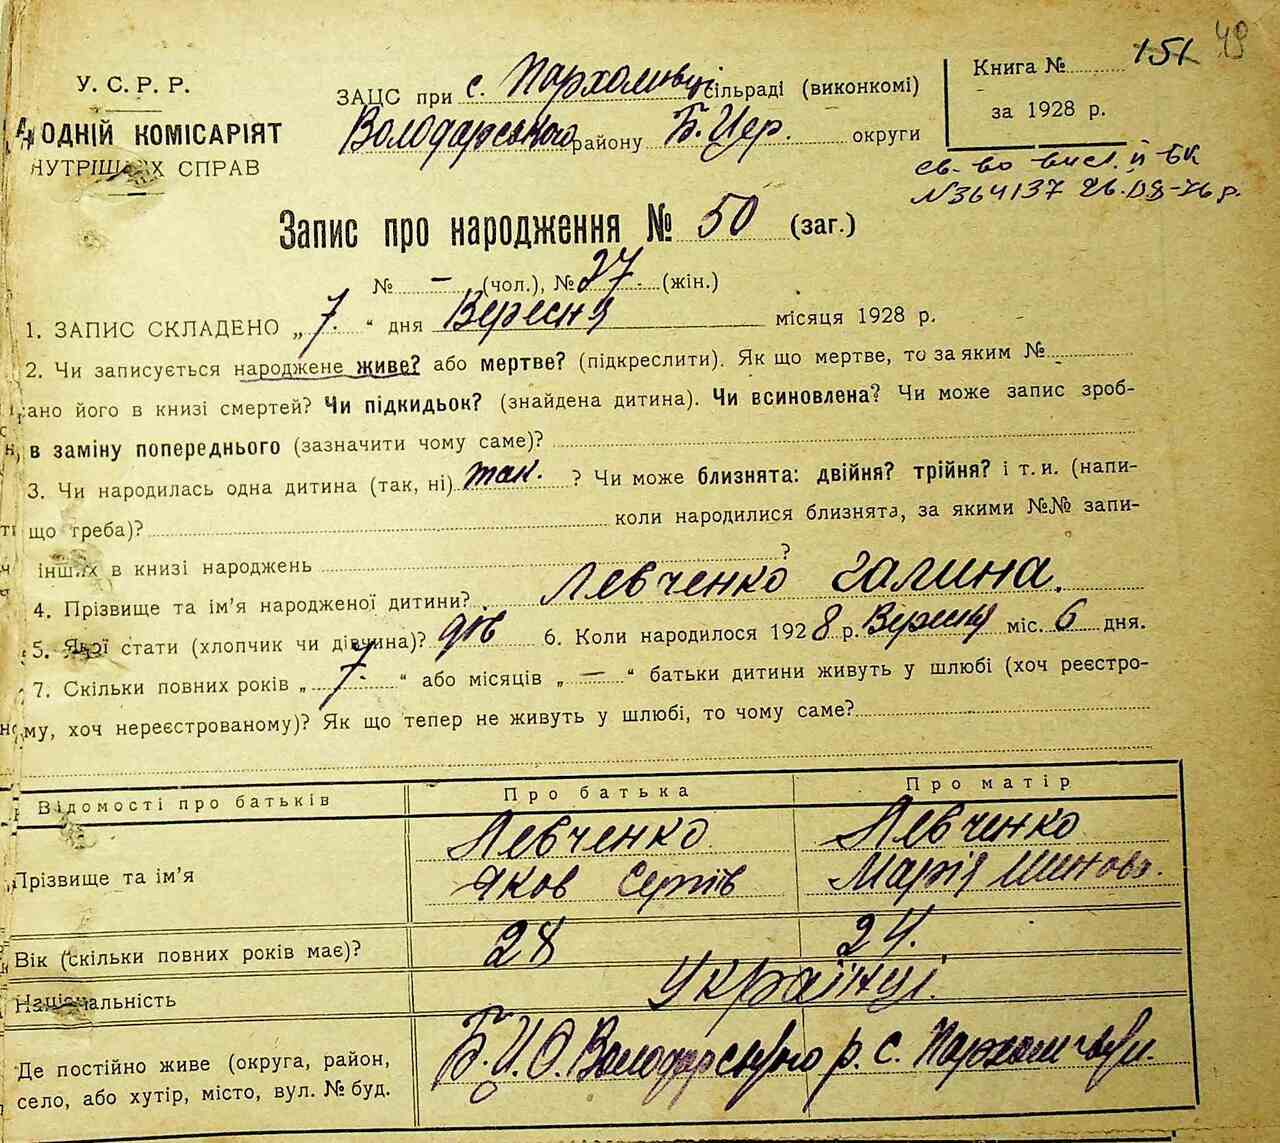 151 49
У. С. Р. Р.
ОДНІЙ КОМІСАРІЯТ
НУТРІШНІХ СПРАВ
ЗАЦС при с. Пархомівці сільраді (виконкомі)
Володарського району Б. Цер. округи
Книга №
за 1928 р.
св-во
№364137 26.08-76 р.
Запис про народження № 50 (заг.)
№ – (чол.), № 27 (жін.)
1. ЗАПИС СКЛАДЕНО „ 7 “ дня Вересня місяця 1928 р.
2. Чи записується народжене живе? або мертве? (підкреслити). Як що мертве, то за яким №
ано його в книзі смертей? Чи підкидьок? (знайдена дитина). Чи всиновлена? Чи може запис зроб-
в заміну попереднього (зазначити чому саме)?
3. Чи народилась одна дитина (так, ні) так. ? Чи може близнята: двійня? трійня? і т. и. (напи-
що треба)? коли народилися близнята, за якими №№ запи-
інших в книзі народжень ?
4. Прізвище та ім’я народженої дитини? Левченко Галина.
5. Якої стати (хлопчик чи дівчина)? дів 6. Коли народилося 1928 р. Вересня міс. 6 дня.
7. Скільки повних років „ 7. “ або місяців „ — “ батьки дитини живуть у шлюбі (хоч реєстро-
му, хоч нереєстрованому)? Як що тепер не живуть у шлюбі, то чому саме?
Відомості про батьків Про батька Про матір
Прізвище та ім’я
Левченко Левченко
Яков Марія
Вік (скільки повних років має)? 28 24.
Національність Українці.
Де постійно живе (округа, район,
село, або хутір, місто, вул. № буд.
Б.Ц.О. Володарського р. с. Пархомівци.